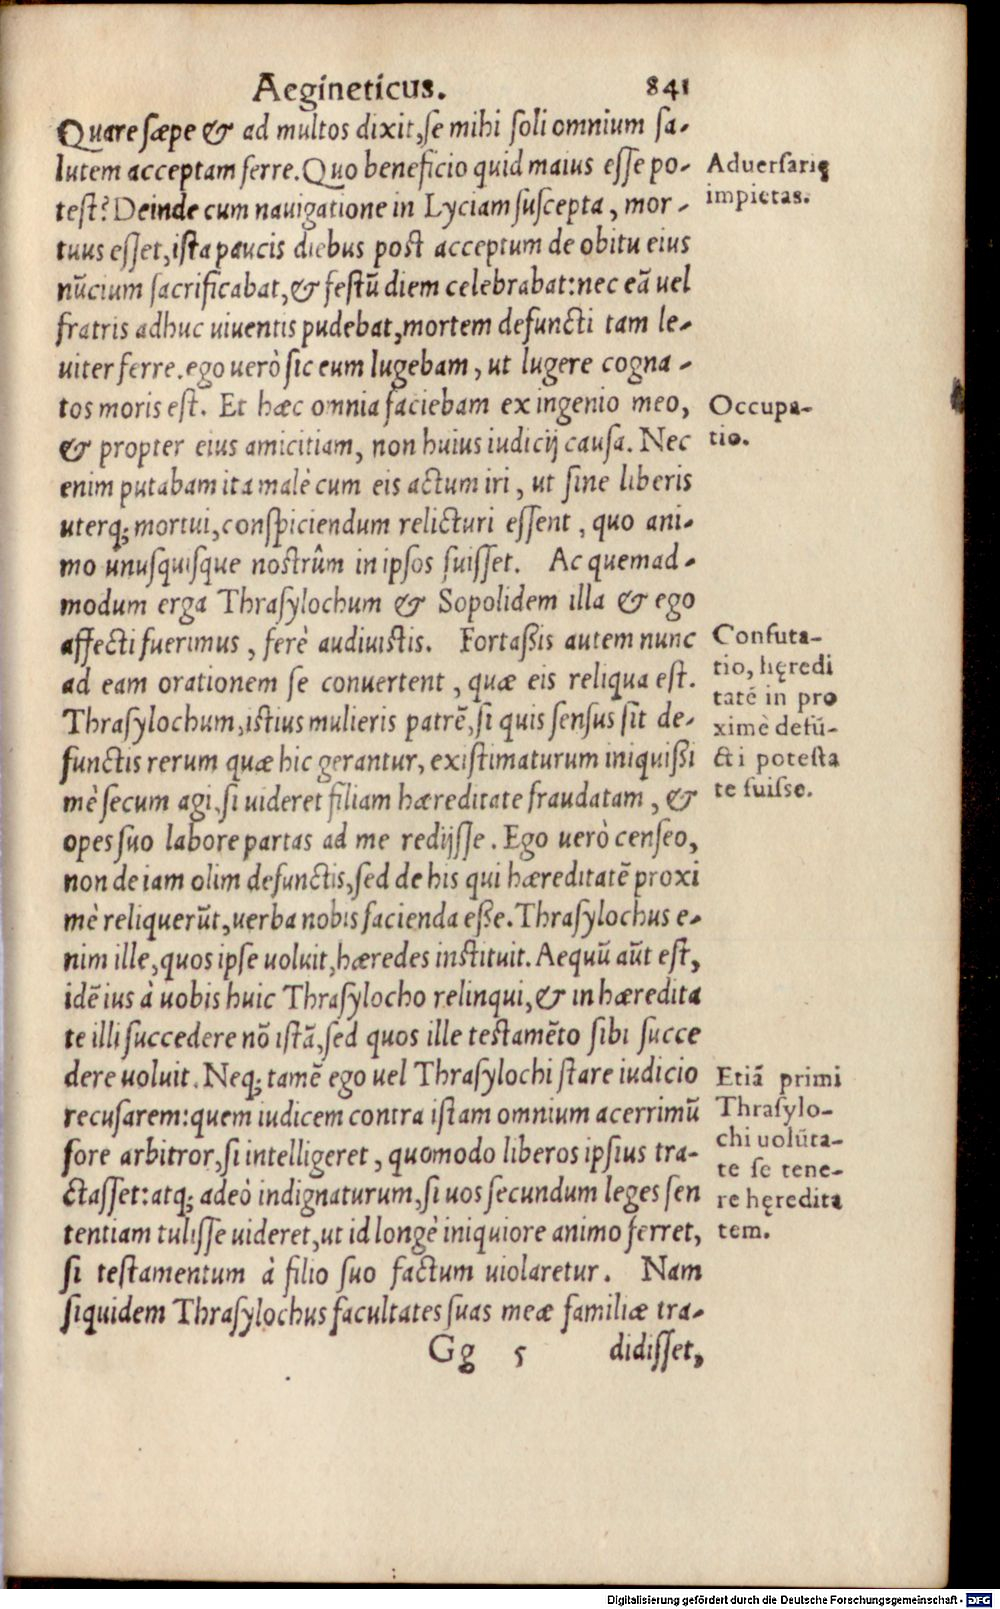 Aegineticus. 841
Quare sæpe & ad multos dixit, se mihi soli omnium sa-
lutem acceptam ferre. Quo beneficio quid maius esse po-
test? Deinde cum nauigatione in Lyciam suscepta, mor-
tuus esset, ista paucis diebus post acceptum de obitu eius
nũcium sacrificabat, & festũ diem celebrabat: nec eã uel
fratris adhuc uiuentis pudebat, mortem defuncti tam le-
uiter ferre. ego uerò sic eum lugebam, ut lugere cogna-
tos moris est. Et hæc omnia faciebam ex ingenio meo,
& propter eius amicitiam, non huius iudicij causa. Nec
enim putabam ita malè cum eis actum iri, ut sine liberis
uterq; mortui, conspiciendum relicturi essent, quo ani-
mo unusquisque nostrûm in ipsos fuisset. Ac quemad-
modum erga Thrasylochum & Sopolidem illa & ego
affecti fuerimus, ferè audiuistis. Fortaßis autem nunc
ad eam orationem se conuertent, quæ eis reliqua est.
Thrasylochum, istius mulieris patrẽ, si quis sensus sit de-
functis rerum quæ hic gerantur, existimaturum iniquißi
mè secum agi, si uideret filiam hæreditate fraudatam, &
opes suo labore partas ad me redijsse. Ego uerò censeo,
non de iam olim defunctis, sed de his qui hæreditatẽ proxi
mè reliquerũt, uerba nobis facienda eße. Thrasylochus e-
nim ille, quos ipse uoluit, hæredes instituit. Aequũ aũt est,
idẽ ius à uobis huic Thrasylocho relinqui, & in hæredita
te illi succedere nõ istã, sed quos ille testamẽto sibi succe
dere uoluit. Neq; tamẽ ego uel Thrasylochi stare iudicio
recusarem: quem iudicem contra istam omnium acerrimũ
fore arbitror, si intelligeret, quomodo liberos ipsius tra-
ctasset: atq; adeò indignaturum, si uos secundum leges sen
tentiam tulisse uideret, ut id longè iniquiore animo ferret,
si testamentum à filio suo factum uiolaretur. Nam
siquidem Thrasylochus facultates suas meæ familiæ tra-
Gg 5 didisset,
Aduersarię
impietas.
Occupa-
tio.
Confuta-
tio, hęredi
tatẽ in pro
ximè defũ-
cti potesta
te fuisse.
Etiã primi
Thrasylo-
chi uolũta-
te se tene-
re hęredita
tem.
Digitalisierung gefördert durch die Deutsche Forschungsgemeinschaft - DFG